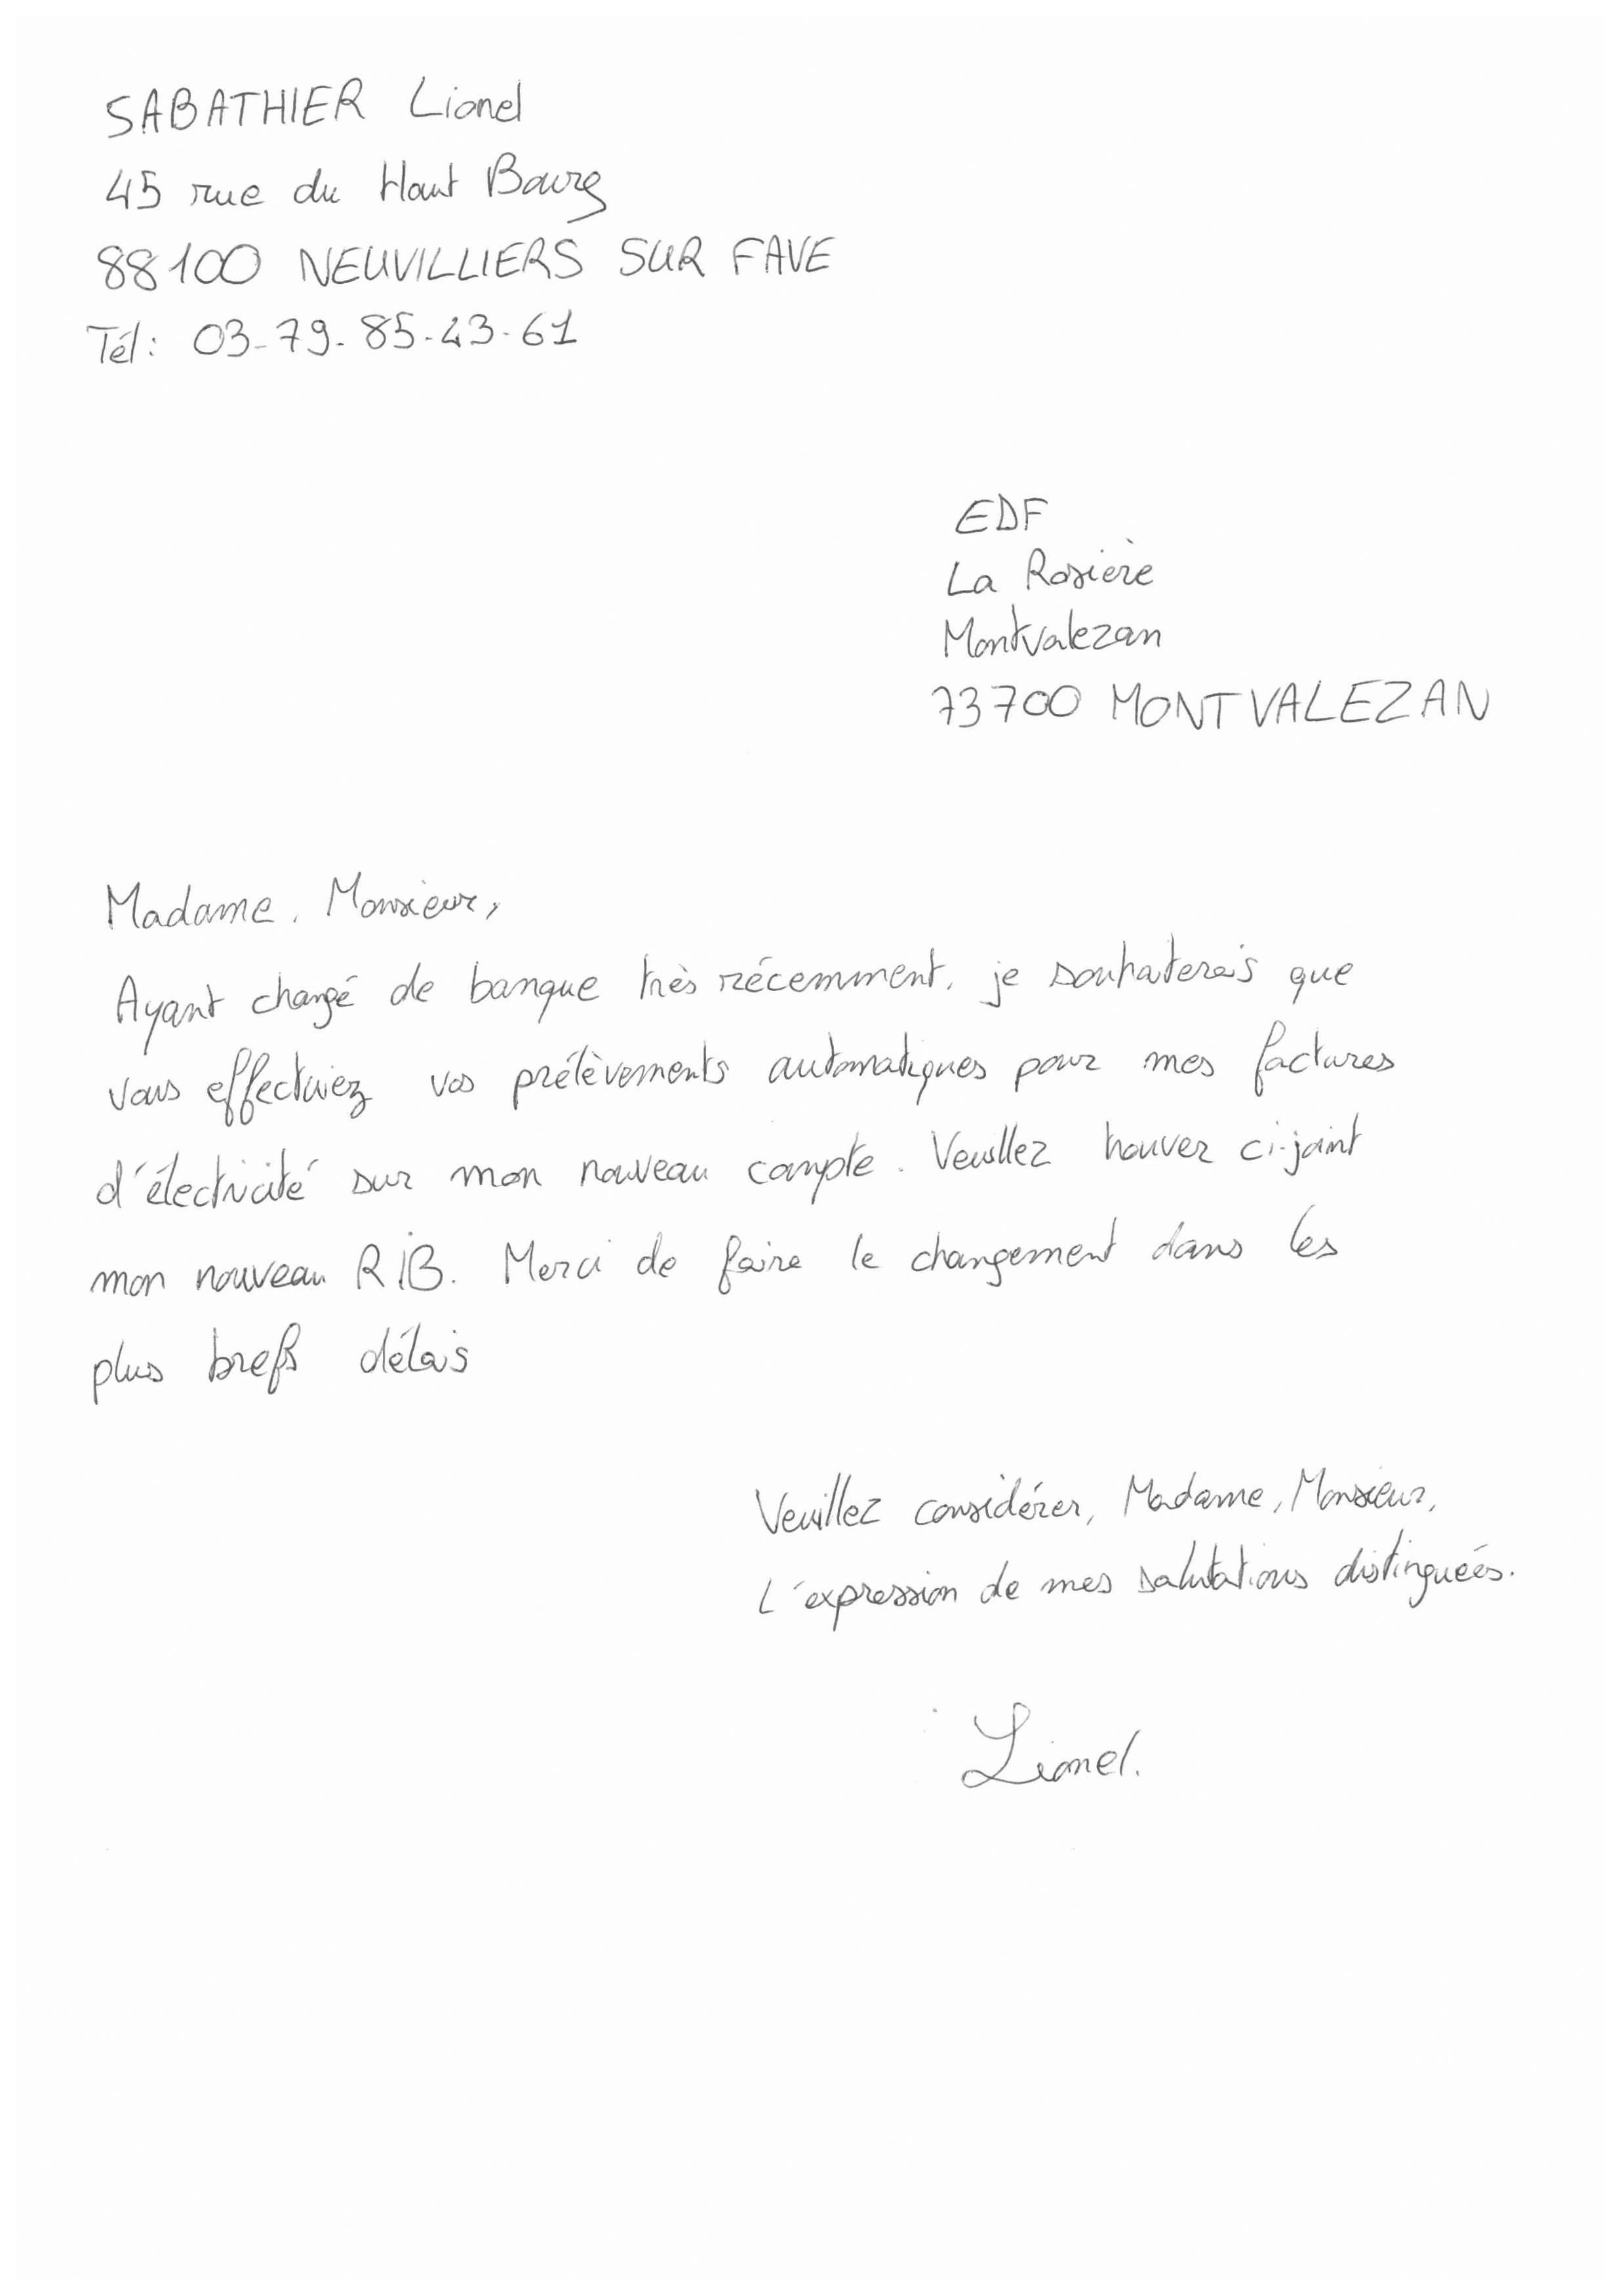 SABATHIER Lionel
45 rue du Haut Bourg
88100 NEUVILLIERS SUR FAVE
Tél: 03-79-85-43-61
EDF
La Rosière
Montvalezan
73700 MONTVALEZAN
Madame, Monsieur,
Ayant changé de banque très récemment, je souhaiterais que
vous effectuiez vos prélèvements automatiques pour mes factures
d'électricité sur mon nouveau compte. Veuillez trouver ci-joint
mon nouveau RIB. Merci de faire le changement dans les
plus brefs délais
Veuillez considérer, Madame, Monsieur,
L'expression de mes salutations distinguées.
Lionel.